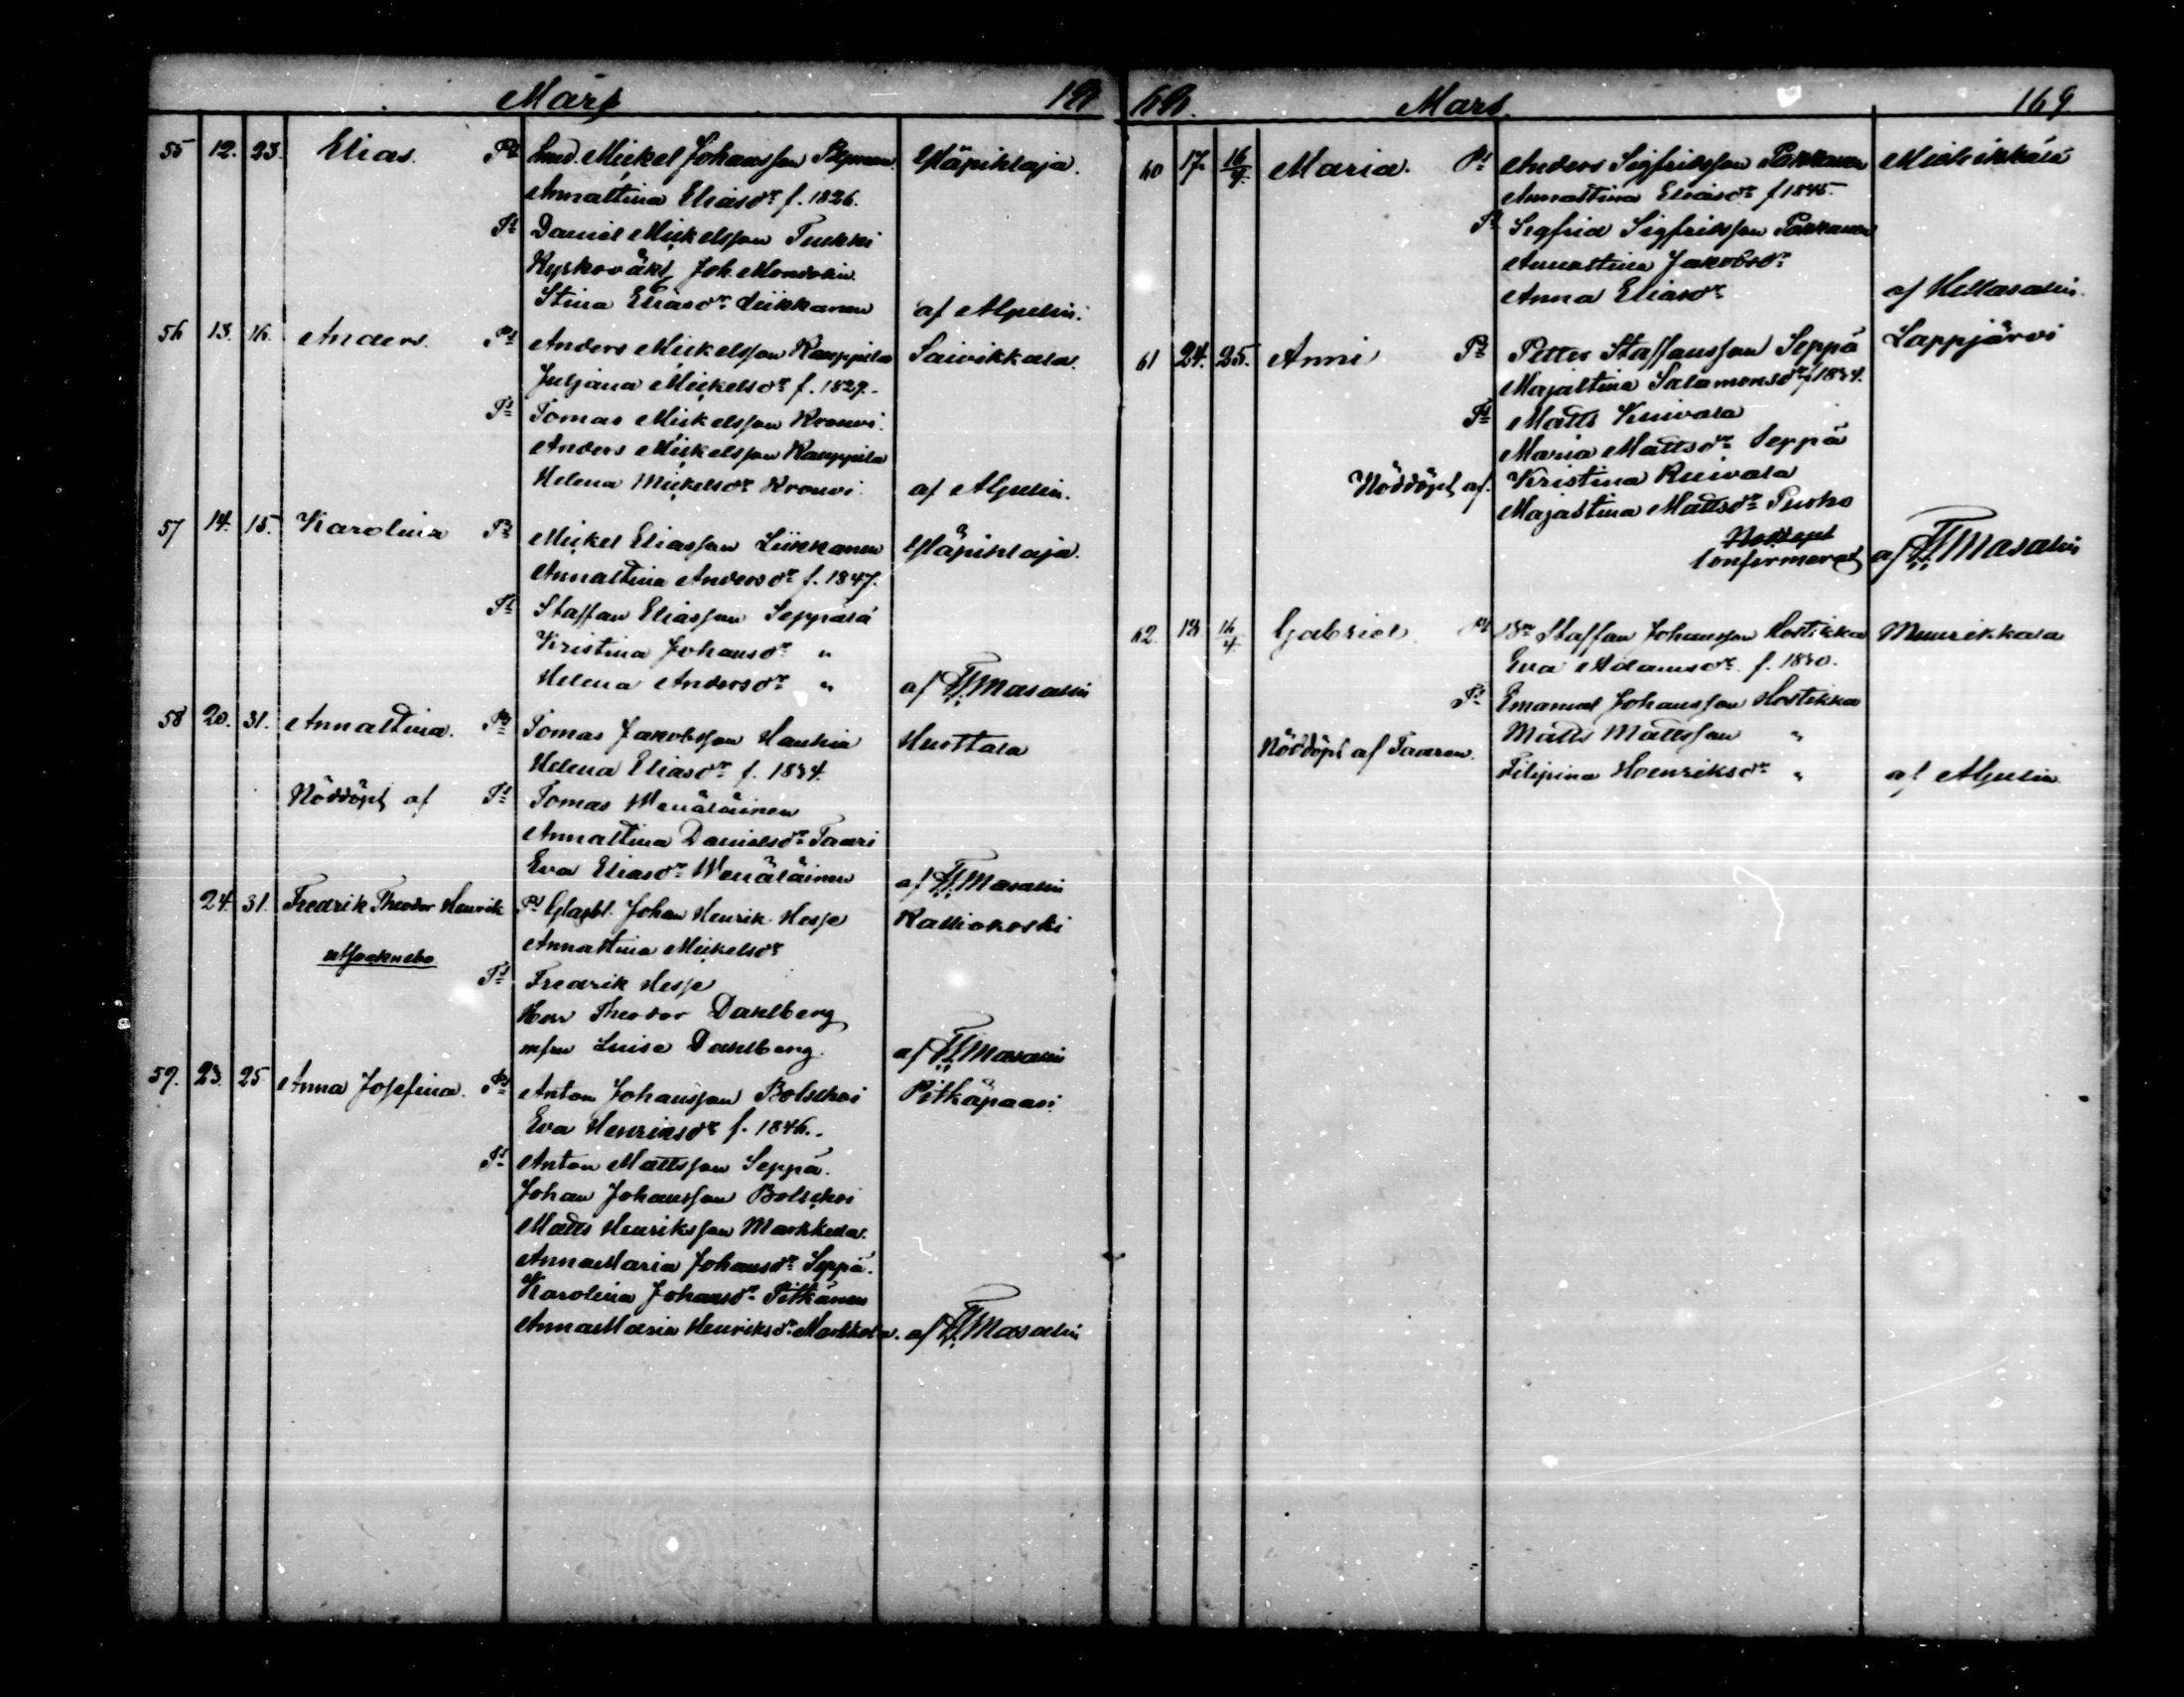 Mars 18
55 12. 23. Elias. Pt Smed. Mickel Johansson Byman Yläpihlaja.
Annastina Eliasdr f. 1826.
Tt Daniel Mickelsson Turkki
Kyrkovakt Joh. Mondolin
Stina Eliasdr Liikkanen af Alpelin.
56 13. 16. Anders. Pt Anders Mickelsson Kauppila Saivikkala.
Juljana Mickelsdr f. 1829.
Tt Tomas Mickelsson Krouvi.
Anders Mickelsson Kauppila
Helena Mickelsdr Krouvi. af Alpelin.
57 14. 15. Karolina Pt Mickel Eliasson Liikkanen Yläpihlaja.
Annastina Andersdr f. 1847.
Tt Staffan Eliasson Seppälä
Kristina Johansdr "
Helena Andersdr " af Masalin
58 20. 31. Annastina. Pt Tomas Jakobsson Hauhia Huottala
Helena Eliasdr f. 1834.
Nöddöpt af Tt Tomas Wenäläinen
Annastina Danielsdr Taari
Eva Eliasdr Wenäläinen af Masalin
24. 31. Fredrik Theodor Henrik Pt Glasbl. Johan Henrik Hesse Kalliokoski
Annastina Mickelsdr
utsocknebo
Tt Fredrik Hesse
Herr Theodor Dahlberg
mfru Luise Dahlberg. af Masalin
59. 23. 25 Anna Josefina. Pt Anton Johansson Bolschoi Pitkäpaasi
Eva Henriksdr f. 1846.
Tt Anton Mattsson Seppä.
Johan Johansson Bolschoi
Matts Henriksson Markkola.
AnnaMaria Johansdr Seppä.
Karolina Johansdr Pitkänen
AnnaMaria Henriksdr Markkola. af Masalin
68. Mars. 169
60 17. 16/4. Maria. Pt Anders Sigfridsson Pakkanen Miehikkälä
Annastina Eliasdr f 1845.
Tt Segfrid Sigfridsson Pakkanen
Annastina Jakobsdr
Anna Eliasdr af Mellasalin.
61 24. 25. Anni Pt Petter Staffansson Seppä Lappjärvi
Majastina Salamonsdr f 1834.
Tt Matts Kuivala
Maria Mattsdr Seppä
Nöddöpt af. Kristina Kuivala
Majastina Mattsdr Purho
Nöddöpt
Confirmerat af Masalin
62. 18 16/4. Gabriel. Pt Br Staffan Johansson Hostikka Muurikkala
Eva Adamsdr f. 1830.
Tt Emanuel Johansson Hostikka
Matts Mattsson "
Nöddöpt af Taaren. Filipina Henriksdr " af Alpelin